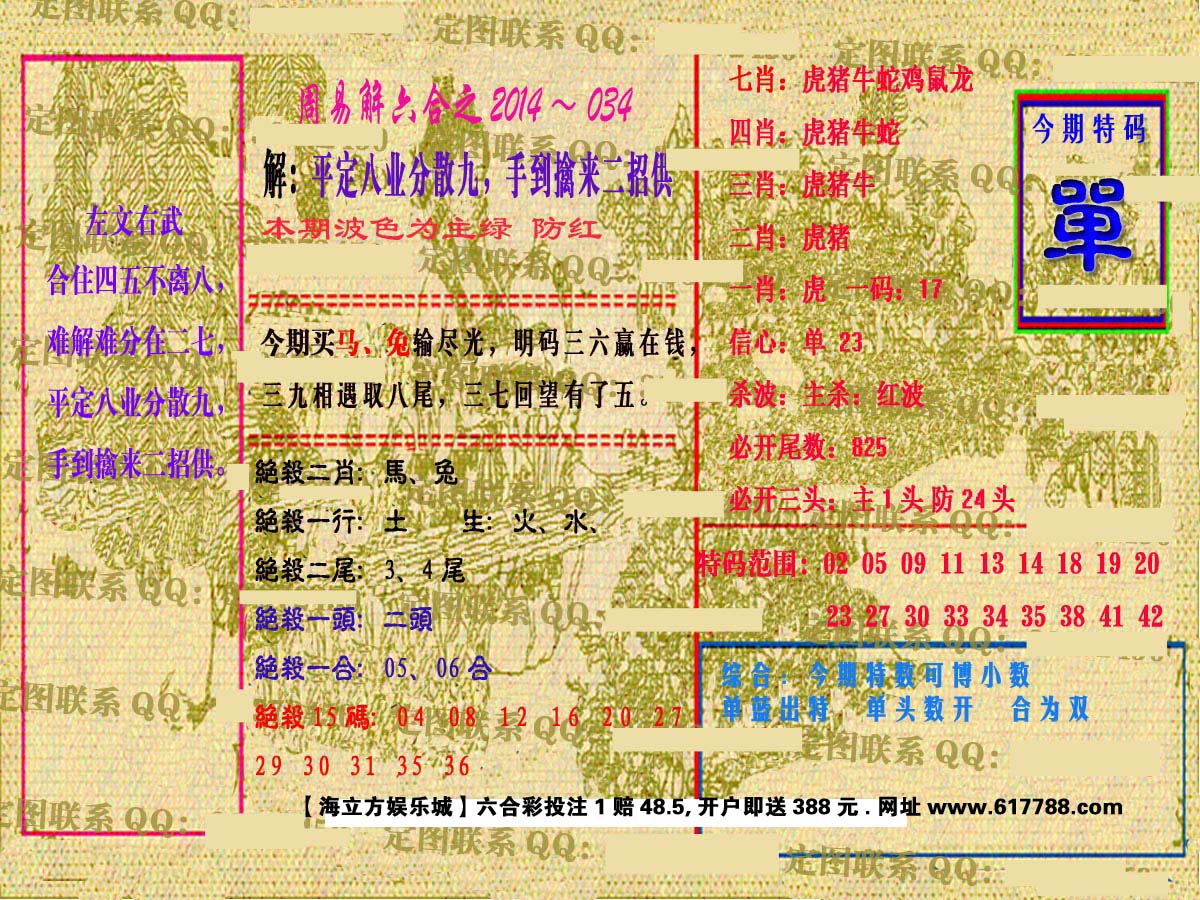 定图联系 QQ:
定图联系 QQ:
定图联系 QQ:
周易解六合之 2014～034
解：平定八业分散九，手到擒来二招供
本期波色为主绿 防红
左文右武
合住四五不离八，
难解难分在二七，
平定八业分散九，
手到擒来二招供。
今期买马、兔输尽光，明码三六赢在钱，
三九相遇取八尾，三七回望有了五。
絕殺二肖：馬、兔
絕殺一行：土 生：火、水、
絕殺二尾：3、4 尾
絕殺一頭：二頭
絕殺一合：05、06 合
絕殺 15 碼：04 08 12 16 20 27
29 30 31 35 36
七肖：虎猪牛蛇鸡鼠龙
四肖：虎猪牛蛇
三肖：虎猪牛
二肖：虎猪
一肖：虎 一码：17
信心：单 23
杀波：主杀：红波
必开尾数：825
必开三头：主 1 头 防 24 头
今期特码
單
特码范围：02 05 09 11 13 14 18 19 20
23 27 30 33 34 35 38 41 42
综合：今期特数可博小数
单蓝出特 单头数开 合为双
【海立方娱乐城】六合彩投注 1 赔 48.5, 开户即送 388 元 . 网址 www.617788.com
定图联系 QQ:
定图联系 QQ:
定图联系 QQ: